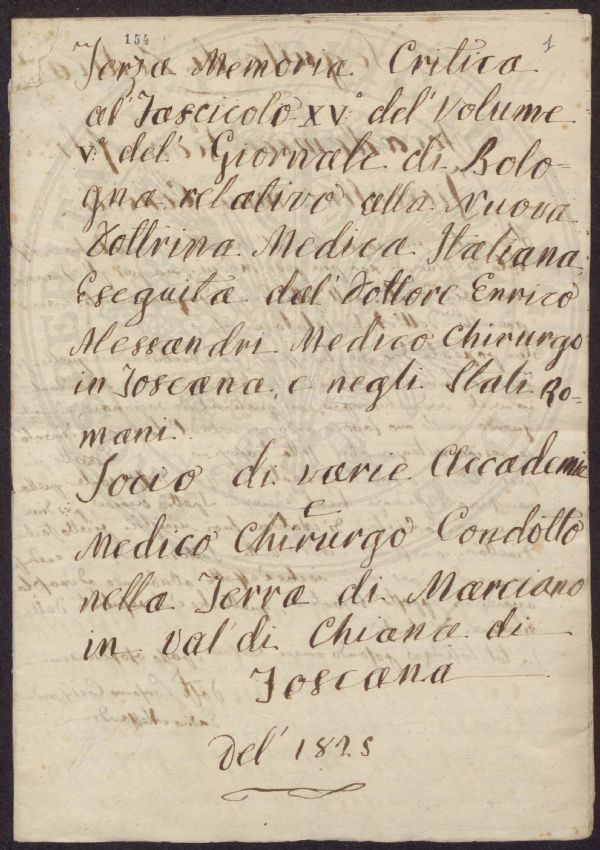 154
1
Terza Memoria Critica
al' Fascicolo XV.° del' Volume
V.° del' Giornale di Bolo-
gna relativo alla Nuova
Dottrina Medica Italiana
Eseguita dal' Dottore Enrico
Alessandri Medico Chirurgo
in Toscana, e negli Stati Ro-
mani.
Socio di varie Accademie
E
Medico Chirurgo Condotto
nella Terra di Marciano
in Val di Chiana di
Toscana
Del' 1825